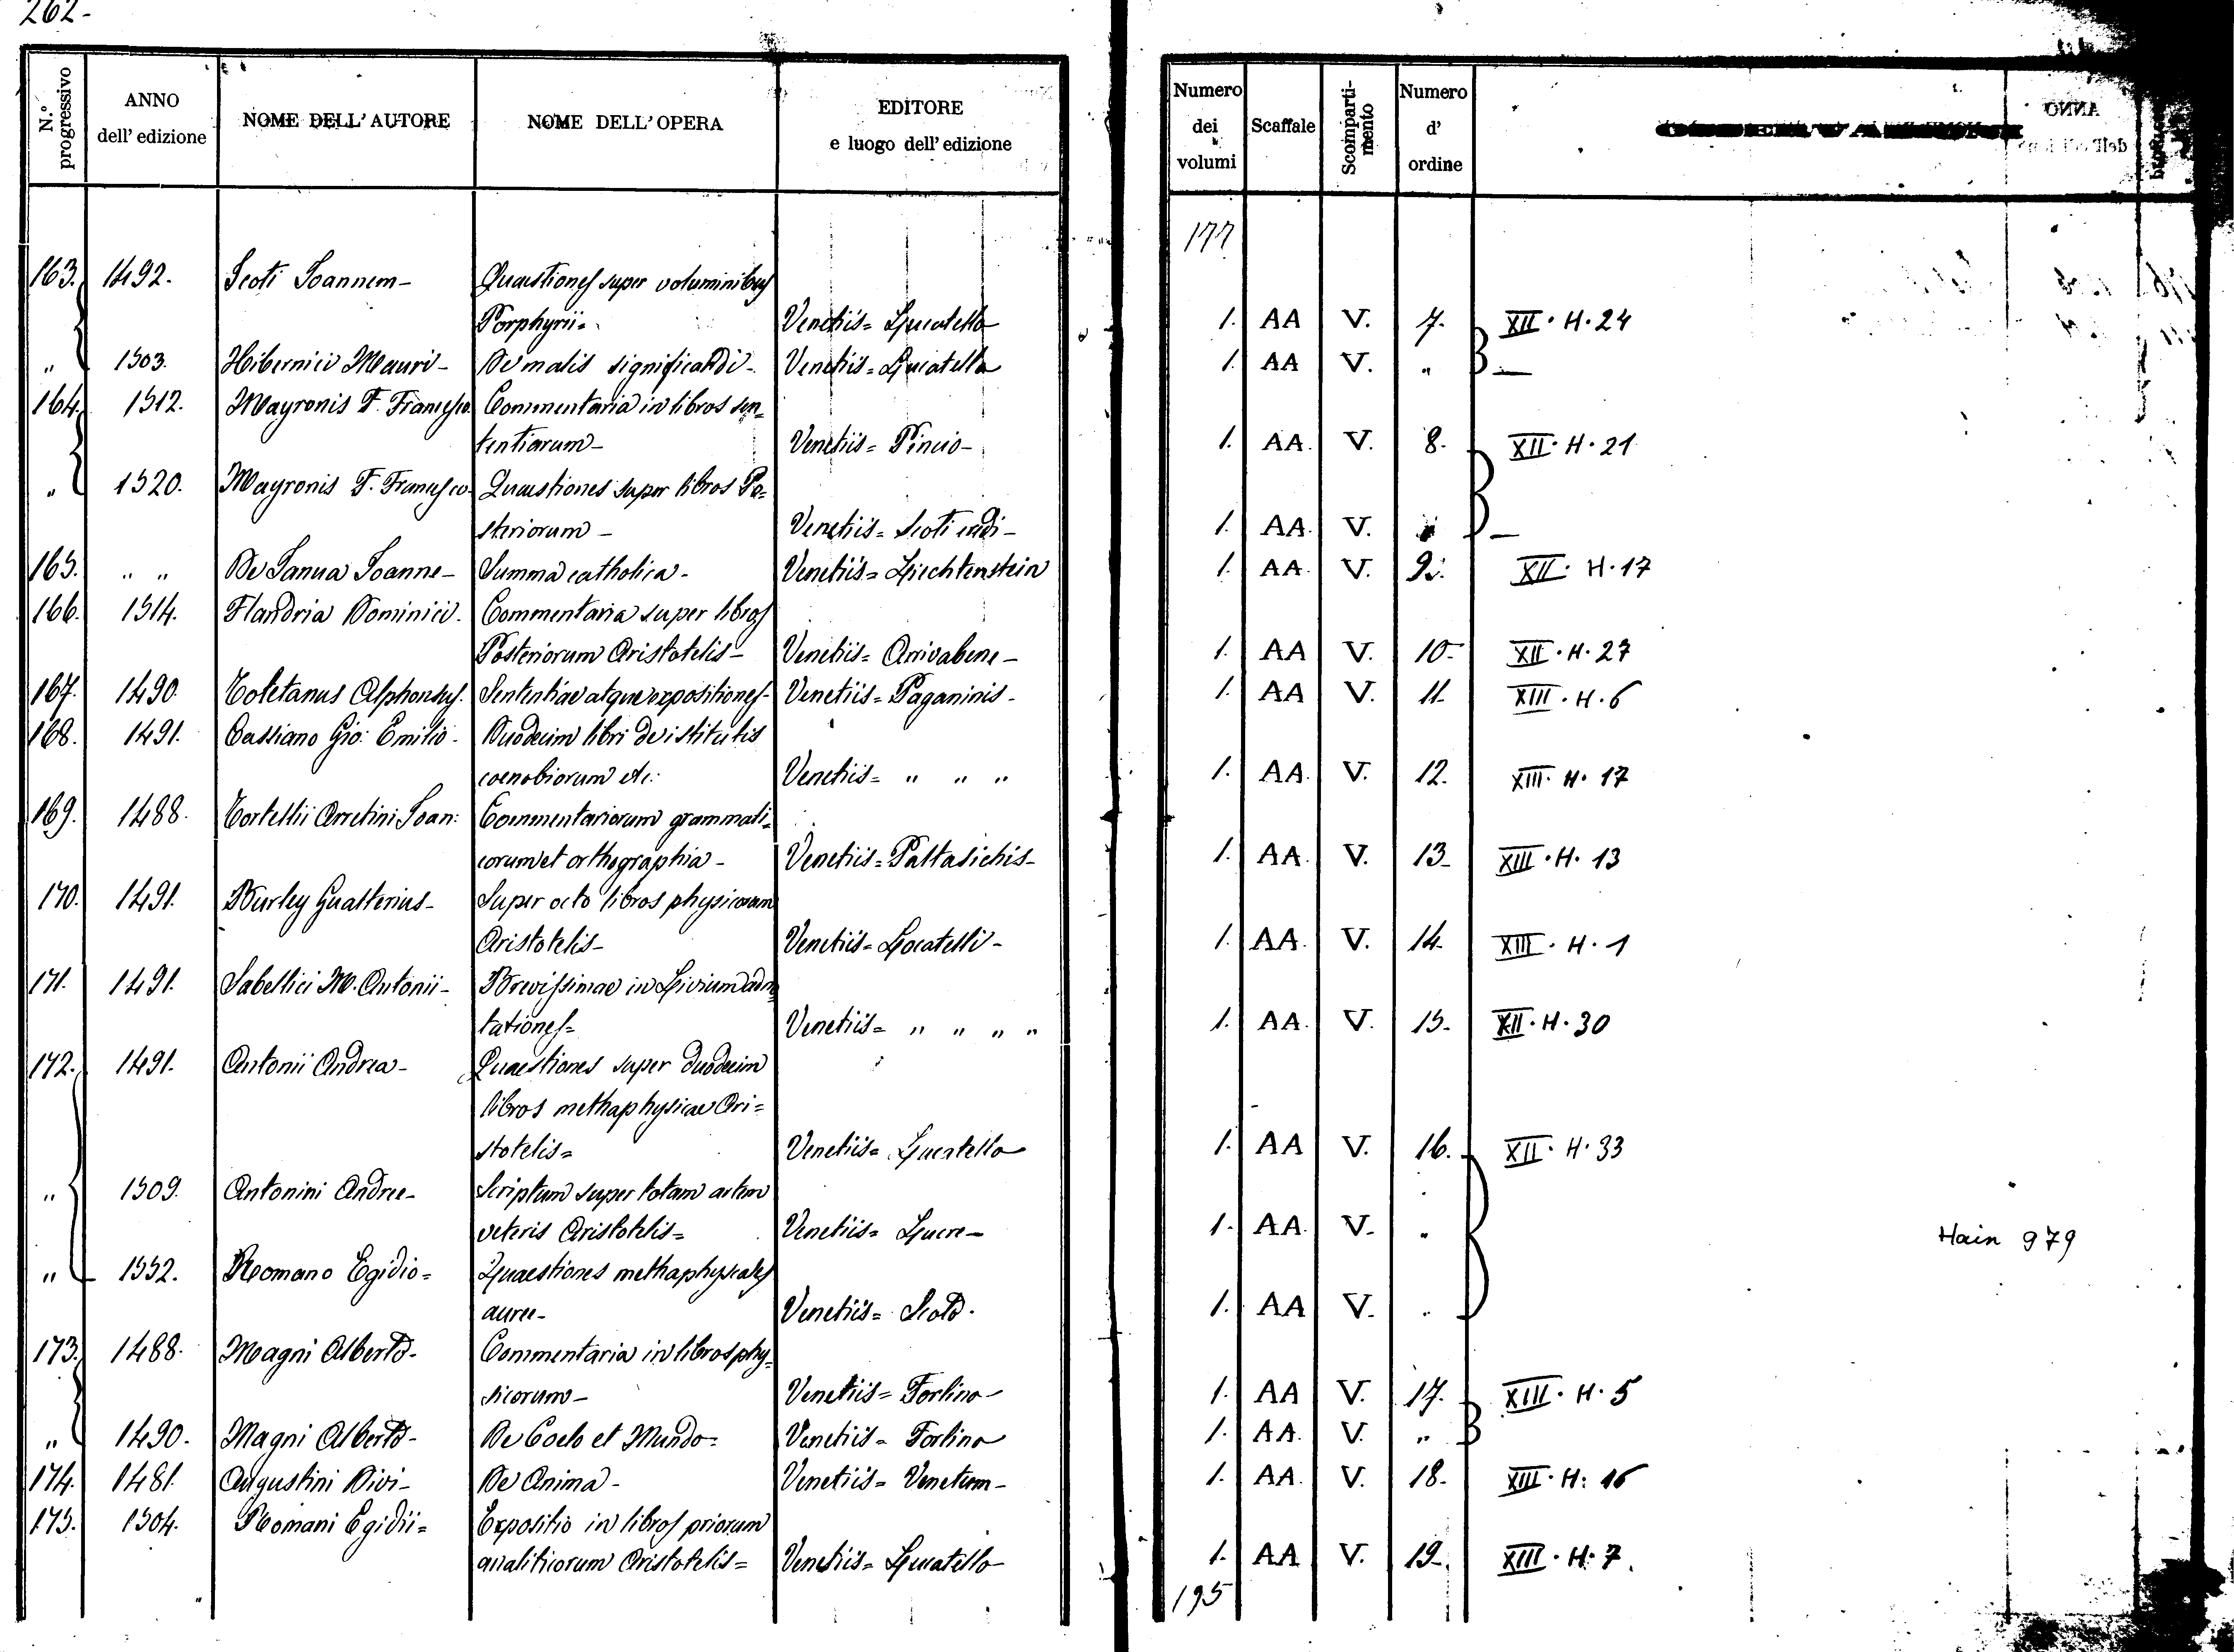 262-
N.° progressivo
ANNO dell' edizione
NOME DELL' AUTORE
NOME DELL' OPERA
EDITORE e luogo dell' edizione
Numero dei volumi
Scaffale
Scomparti-mento
Numero d' ordine
177
163. 1492. Scoti Joannem- Quaestiones super voluminibus
Porphyrii- Venetiis= Lucatello 1. AA V. 7. XII. H. 24
" 1503. Hibernici Mauri- De malis significandi- Venetiis= Lucatello 1. AA V. " —
164. 1512. Mayronis F. Francesco Commentaria in libros sen=
tentiarum- Venetiis= Pincio- 1. AA. V. 8. XII. H. 21
" 1520. Mayronis F. Francesco- Quaestiones super libros Po=
steriorum- Venetiis= Scoti eredi- 1. AA. V. —
165. " " De Janua Joanne- Summa catholica- Venetiis= Liechtenstein 1. AA. V. 9. XII. H. 17
166. 1514. Flandria Dominici. Commentaria super libros
Posteriorum Aristotelis- Venetiis= Arrivabene- 1. AA V. 10- XII. H. 27
167. 1490. Toletanus Alphonsus. Sententiae atque expositiones- Venetiis= Paganinis- 1. AA V. 11. XIII. H. 6
168. 1491. Cassiano Gio: Emilio- Duodecim libri de istitutis
coenobiorum etc: Venetiis= " " " 1. AA. V. 12. XIII. H. 17
169. 1488. Tortellii Arretini Joan: Commentariorum grammati=
corum et orthographia- Venetiis= Paltasichis- 1. AA. V. 13- XIII. H. 13
170. 1491. Burley Gualterius- Super octo libros physicorum
Aristotelis- Venetiis= Locatelli- 1. AA. V. 14- XIII. H. 1
171. 1491. Sabellici M. Antonii- Brevissimae in Livium adno
tationes= Venetiis= " " " " 1. AA. V. 15. XII. H. 30
172. 1491. Antonii Andrea- Quaestiones super duodecim
libros methaphysicae Ari=
stotelis= Venetiis= Lucatello 1. AA V. 16. XII. H. 33
" 1509. Antonini Andree- Scriptum super totam artem
veteris Aristotelis= Venetiis= Luere- 1. AA. V. "
Hain 979
" 1552. Romano Egidio= Quaestiones methaphysicales
auree- Venetiis= Scoto. 1. AA V. "
173. 1488. Magni Alberto- Commentaria in libros phy=
sicorum- Venetiis= Forlino- 1. AA V. 17. XIII. H. 5
" 1490. Magni Alberto- De Coelo et Mundo= Venetiis- Forlino 1. AA. V. "
174. 1481. Augustini Divi- De Anima- Venetiis- Venetum- 1. AA. V. 18. XIII. H: 16
175. 1504. Romani Egidii= Expositio in libros priorum
analiticorum Aristotelis= Venetiis= Lucatello 1. AA V. 19. XIII. H. 7.
195